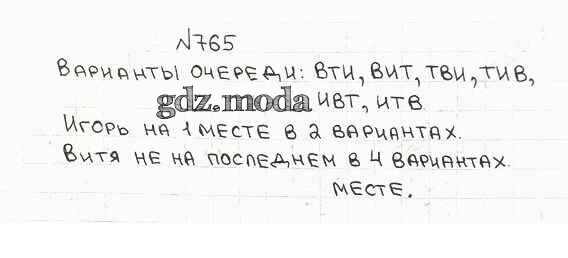 №765
ВАРИАНТЫ ОЧЕРЕДИ: ВТИ, ВИТ, ТВИ, ТИВ,
gdz.moda ИВТ, ИТВ
ИГОРЬ НА 1 МЕСТЕ В 2 ВАРИАНТАХ.
ВИТЯ НЕ НА ПОСЛЕДНЕМ В 4 ВАРИАНТАХ.
МЕСТЕ.